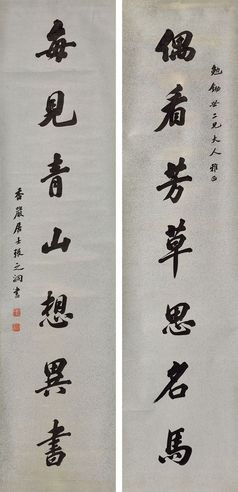 二兄大人雅正
偶看芳草思名馬
每見青山想異書
香嚴居士張之洞書